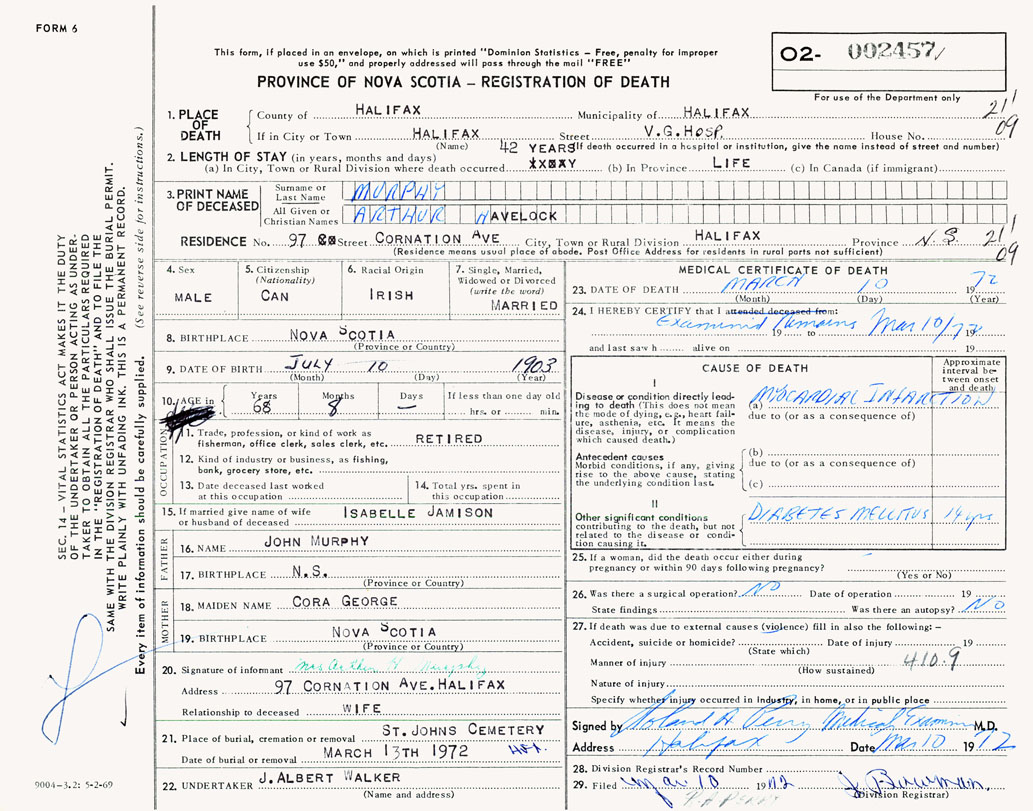 FORM 6
This form, if placed in an envelope, on which is printed "Dominion Statistics – Free, penalty for improper
use $50," and properly addressed will pass through the mail "FREE"
PROVINCE OF NOVA SCOTIA – REGISTRATION OF DEATH
O2- 002457
For use of the Department only
21 1
09
1. PLACE OF DEATH
County of HALIFAX Municipality of HALIFAX
If in City or Town HALIFAX Street V.G.HOSP. House No.
(Name) (If death occurred in a hospital or institution, give the name instead of street and number)
42 YEARS
2. LENGTH OF STAY (in years, months and days)
(a) In City, Town or Rural Division where death occurred (b) In Province LIFE (c) In Canada (if immigrant)
3. PRINT NAME OF DECEASED
Surname or Last Name MURPHY
All Given or Christian Names ARTHUR HAVELOCK
RESIDENCE No. 97 Street CORNATION AVE City, Town or Rural Division HALIFAX Province N.S. 21 1
09
(Residence means usual place of abode. Post Office Address for residents in rural parts not sufficient)
4. Sex
MALE
5. Citizenship
(Nationality)
CAN
6. Racial Origin
IRISH
7. Single, Married,
Widowed or Divorced
(write the word)
MARRIED
8. BIRTHPLACE NOVA SCOTIA
(Province or Country)
9. DATE OF BIRTH JULY 10 1903
(Month) (Day) (Year)
10. AGE in
Years Months Days If less than one day old
68 8 — hrs. or min.
OCCUPATION
11. Trade, profession, or kind of work as
fisherman, office clerk, sales clerk, etc. RETIRED
12. Kind of industry or business, as fishing,
bank, grocery store, etc.
13. Date deceased last worked
at this occupation
14. Total yrs. spent in
this occupation
15. If married give name of wife
or husband of deceased ISABELLE JAMISON
FATHER
16. NAME JOHN MURPHY
17. BIRTHPLACE N.S.
(Province or Country)
MOTHER
18. MAIDEN NAME CORA GEORGE
19. BIRTHPLACE NOVA SCOTIA
(Province or Country)
20. Signature of informant Mrs Arthur H Murphy
Address 97 CORNATION AVE.HALIFAX
Relationship to deceased WIFE
21. Place of burial, cremation or removal ST.JOHNS CEMETERY
Date of burial or removal MARCH 13TH 1972
22. UNDERTAKER J.ALBERT WALKER
(Name and address)
MEDICAL CERTIFICATE OF DEATH
23. DATE OF DEATH MARCH 10 1972
(Month) (Day) (Year)
24. I HEREBY CERTIFY that I attended deceased from:
Examined Remains Mar 10/72
19 19
and last saw h alive on 19
CAUSE OF DEATH
Approximate
interval be-
tween onset
and death
I
Disease or condition directly lead-
ing to death (This does not mean
the mode of dying, e.g., heart fail-
ure, asthenia, etc. It means the
disease, injury, or complication
which caused death.)
(a) MYOCARDIAL INFARCTION
due to (or as a consequence of)
Antecedent causes
Morbid conditions, if any, giving
rise to the above cause, stating
the underlying condition last.
(b)
due to (or as a consequence of)
(c)
II
Other significant conditions
contributing to the death, but not
related to the disease or condi-
tion causing it.
DIABETES MELLITUS 14 yrs
25. If a woman, did the death occur either during
pregnancy or within 90 days following pregnancy?
(Yes or No)
26. Was there a surgical operation? NO Date of operation 19
State findings Was there an autopsy? NO
27. If death was due to external causes (violence) fill in also the following: –
Accident, suicide or homicide? Date of injury 19
(State which)
Manner of injury 410.9
(How sustained)
Nature of injury
Specify whether injury occurred in industry, in home, or in public place
Signed by Roland H Perry Medical Examiner M.D.
Address Halifax Date Mar 10 1972
28. Division Registrar's Record Number
29. Filed Mar 10 1972
(Division Registrar)
SEC. 14 – VITAL STATISTICS ACT MAKES IT THE DUTY
OF THE UNDERTAKER OR PERSON ACTING AS UNDER-
TAKER TO OBTAIN ALL THE PARTICULARS REQUIRED
IN THE "REGISTRATION OF DEATH" AND TO FILE THE
SAME WITH THE DIVISION REGISTRAR WHO SHALL ISSUE THE BURIAL PERMIT.
WRITE PLAINLY WITH UNFADING INK. THIS IS A PERMANENT RECORD.
Every item of information should be carefully supplied. (See reverse side for instructions.)
9004-3.2: 5-2-69